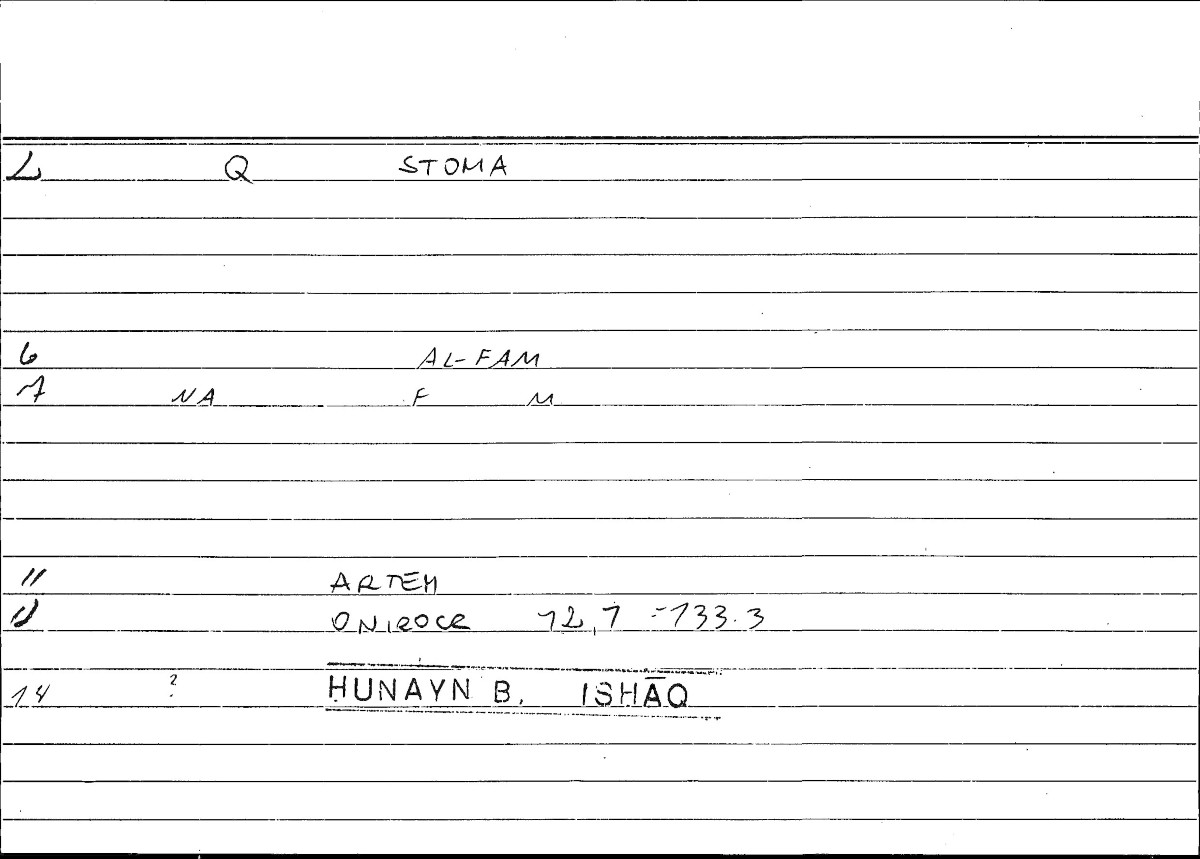 2 Q STOMA
6 AL-FAM
7 NA F M
11 ARTEM
12 ONIROCR 12,7 =133.3
14 ? ḤUNAYN B. ISHĀQ